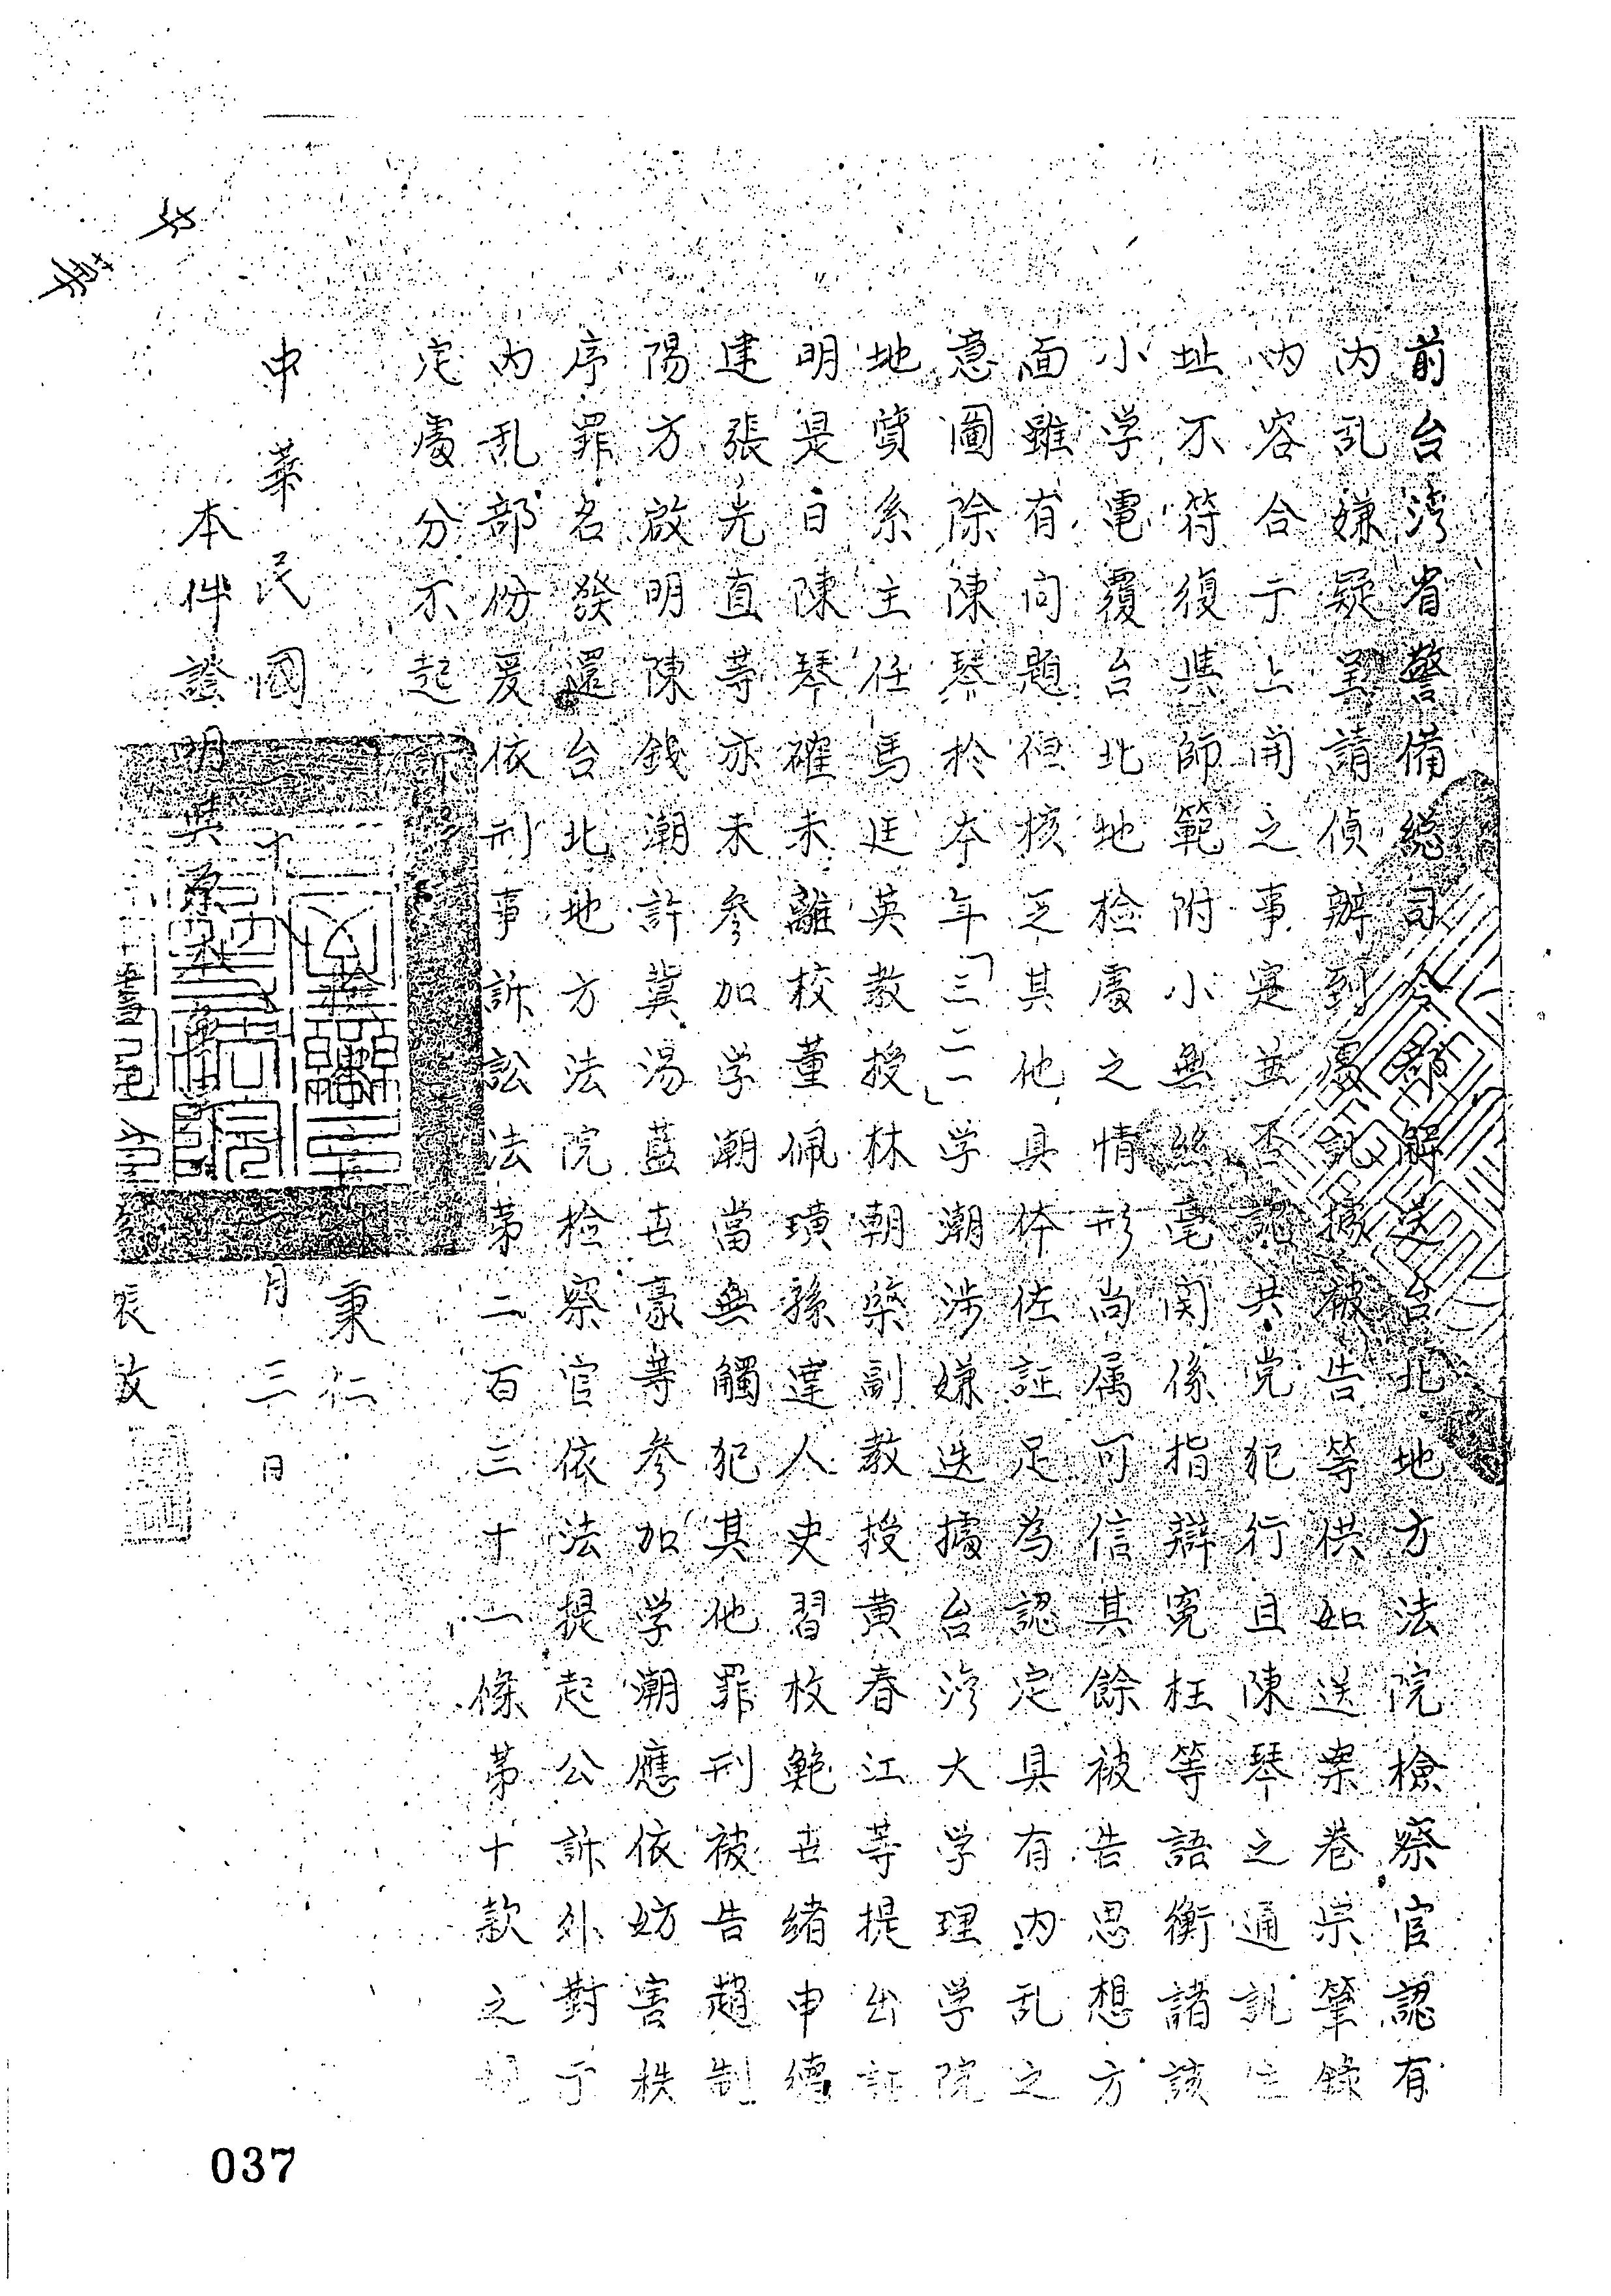 前台湾省警備總司令部解送台北地方法院檢察官認有
内乱嫌疑呈請偵辦到處訊據被告等供如送案卷宗筆錄
内容合于上開之事寔並否認共党犯行且陳琴之通訊住
址不符復与師範附小無絲毫関係指辯寃枉等語衡諸該
小学電覆台北地检處之情形尚属可信其餘被告思想方
面雖有问題但核乏其他具体佐証足為認定具有内乱之
意圖除陳琴於本年三二一学潮涉嫌迭據台湾大学理学院
地質系主任馬廷英教授林朝棨副教授黄春江等提出証
明是日陳琴確未離校董佩璜孫達人史習枚範世緒申德
建張光直等亦未參加学潮當無觸犯其他罪刑被告趙制
陽方啟明陳錢潮許冀湯藍世豪等參加学潮應依妨害秩
序罪名發還台北地方法院检察官依法提起公訴外對于
内乱部份爰依刑事訴訟法第二百三十一條第十款之規
定處分不起訴
秉仁
中華民國 月三日
本件證明與原本無異
張
037